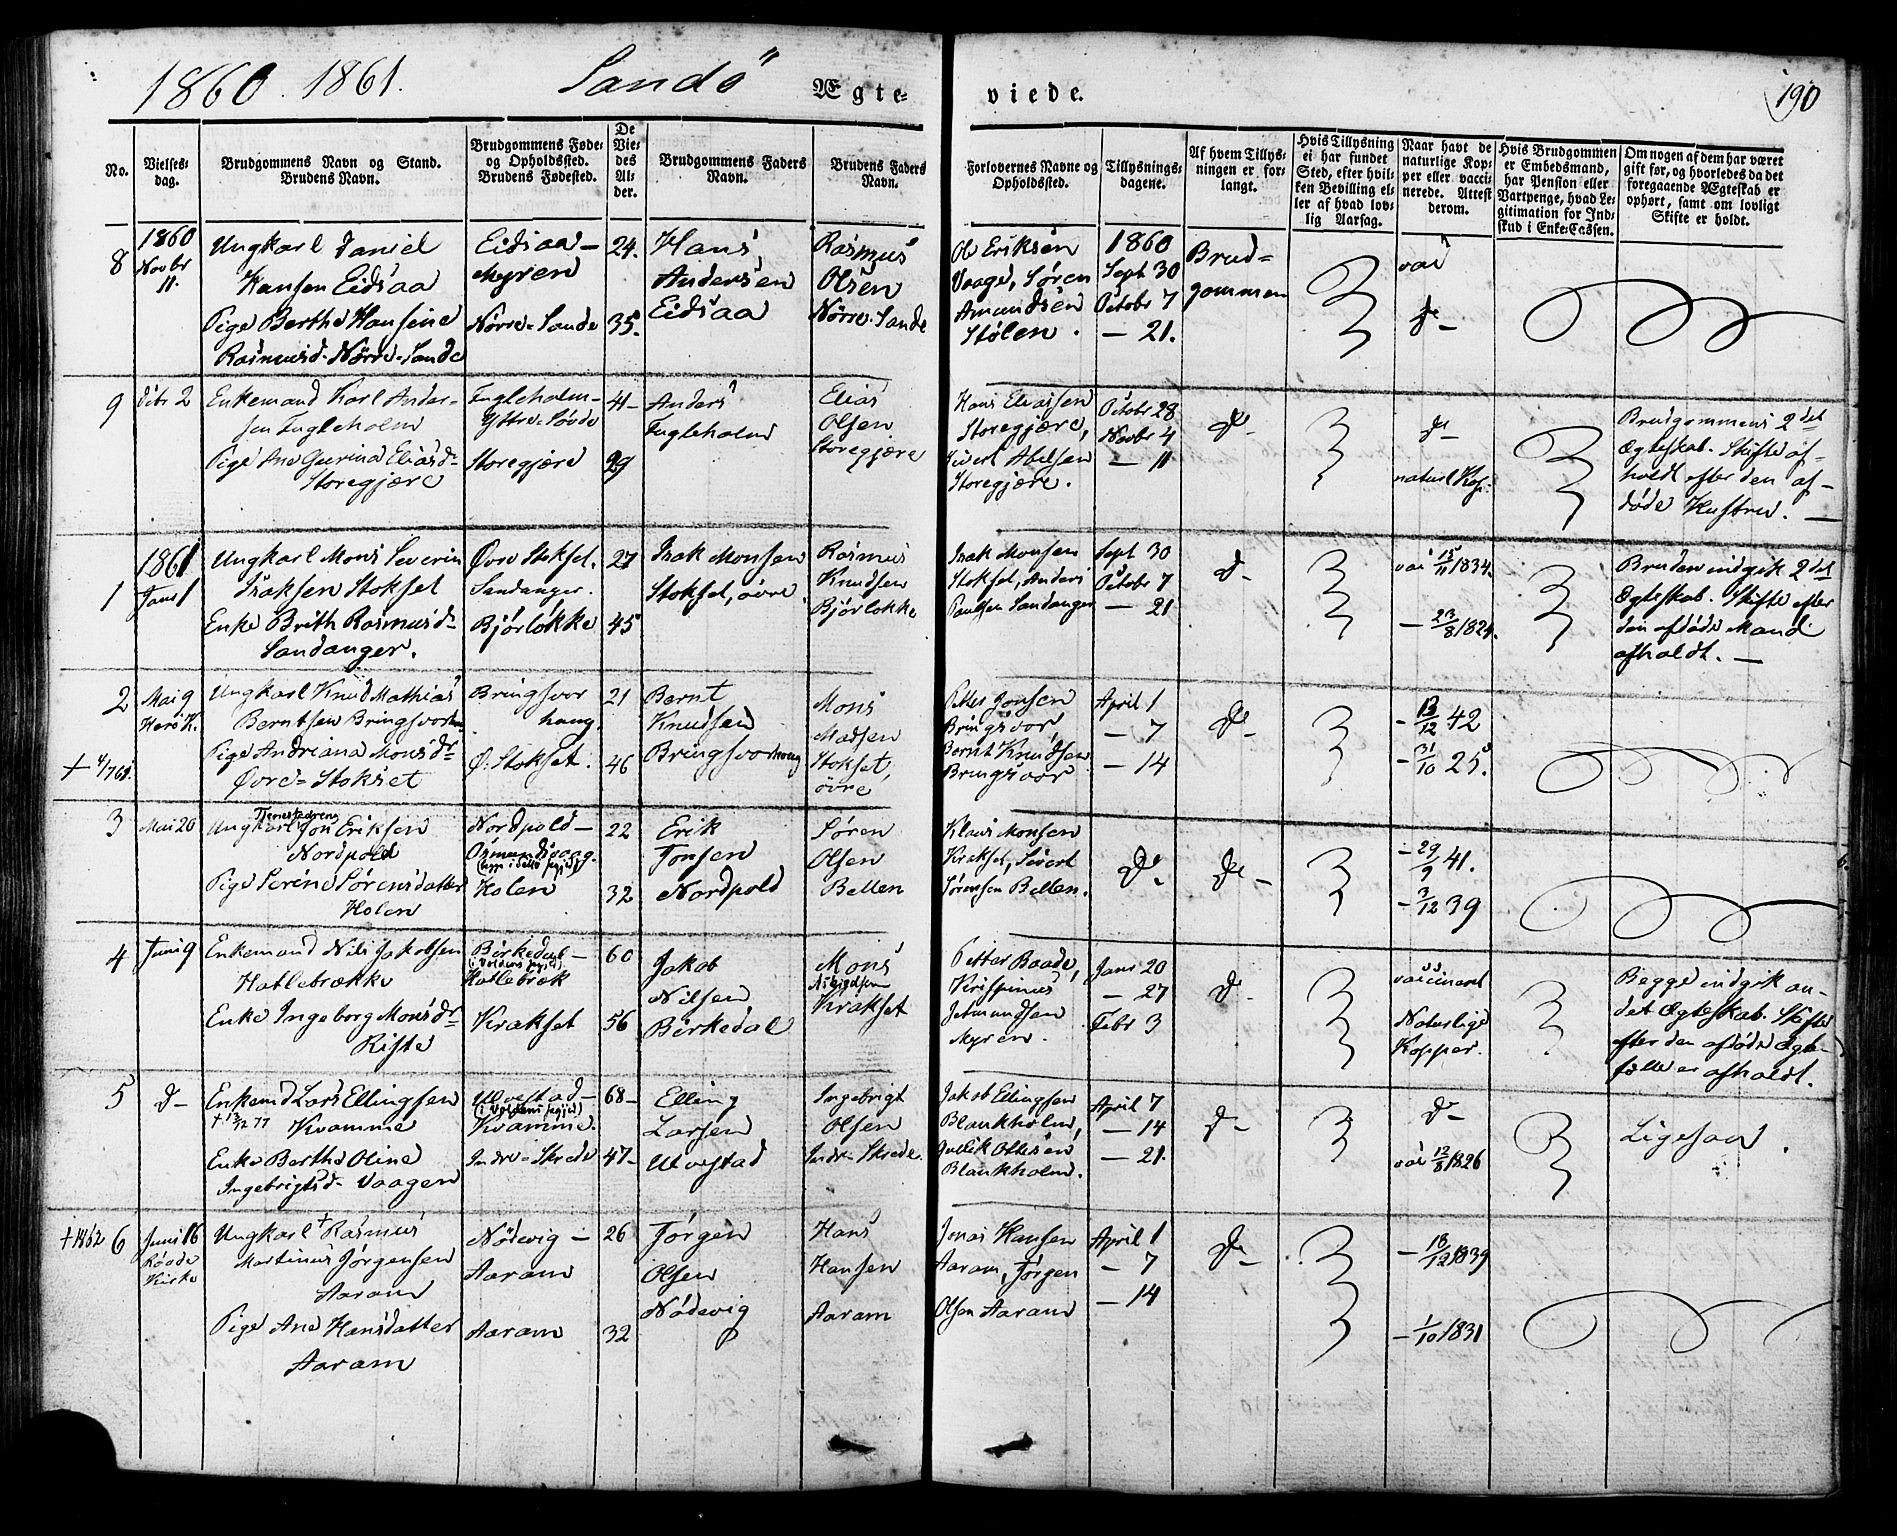 1860. 1861. Sandö Ægte- viede. 190
No.
Vielses-
dag.
Brudgommens Navn og Stand.
Brudens Navn.
Brudgommens Føde-
og Opholdssted.
Brudens Fødested.
De
Vie-
des
Al-
der.
Brudgommens Faders
Navn.
Brudens Faders
Navn.
Forlovernes Navne og
Opholdssted.
Tillysnings-
dagene.
Af hvem Tillys-
ningen er for-
langt.
Hvis Tillysning
ei har fundet
Sted, efter hvil-
ken Bevilling el-
ler af hvad lov-
lig Aarsag.
Naar havt de
naturlige Kop-
per eller vacci-
nerede. Attest
derom.
Hvis Brudgommen
er Embedsmand,
har Pension eller
Vartpenge, hvad Le-
gitimation for Ind-
skud i Enke-Cassen.
Om nogen af dem har været
gift før, og hvorledes da det
foregaaende Ægteskab er
ophørt, samt om lovligt
Skifte er holdt.
8
1860
Novbr
11.
Ungkarl Daniel
Hansen Eidsaa
Pige Berthe Hansine
Rasmusd. Nörre-Sande
Eidsaa-
myren
Nörre-Sande
24.
35.
Hans
Andersen
Eidsaa
Rasmus
Olsen
Nörre-Sande
Ole Eriksen
Vaage, Sören
Amundsen
Stölen.
1860
Sept 30
Octobr 7
— 21.
Brud-
gommen
vac
do -
9
Dcbr 2
Enkemand Karl Ander-
sen Fugleholm
Pige Ane Gurina Eliasdr
Storegjære
Fugleholm-
Yttre-Sövde
Storegjære
41-
29
Anders
Fugleholm
Elias
Olsen
Storegjære
Hans Eliassen
Storegjære,
Sivert Abelsen
Storegjære.
Octobr 28
Novbr 4
— 11
do -
do -
naturl Kop.
Brudgommens 2det
Ægteskab. Skifte af-
holdt efter den af-
døde Hustru. —
1
1861
Janr 1
Ungkarl Mons Severin
Isaksen Stokset
Enke Brith Rasmusdr
Sandanger.
Övre Stokset.
Sandanger.
Bjørlokke
27
45
Isak Monsen
Stokset, övre
Rasmus
Knudsen
Bjørlokke
Isak Monsen
Stokset, Anders
Paulsen Sandanger
Sept 30
Octobr 7
— 21
do -
vac 15/11 1834.
— 23/8 1824.
Bruden indgik 2det
Ægteskab. Skifte efter
den afdøde Mand
afholdt. —
2
† 4/7 61.
Mai 9
Herö K.
Ungkarl Knud Mathias
Berntsen Bringsvorhaug
Pige Andriana Monsdr
Övre-Stokset
Bringsvor
haug
Ö. Stokset.
21
46
Bernt
Knudsen
Bringsvorhaug
Mons
Madsen
Stokset,
övre
Petter Jonsen
Bringsvor,
Bernt Knudsen
Bringsvor
April 1
— 7
— 14
do -
- 13/12 42
- 31/10 25.
3
Mai 20
Tjenestedreng
Ungkarl Jon Eriksen
Nordpold
Pige Serine Sörensdatter
Holen
Nordpold-
Osmundsvaag.
Holen
22
32
Erik
Jonsen
Nordpold
Sören
Olsen
Bellen
Klaus Monsen
Krakset, Sivert
Sörensen Bellen.
do -
do -
- 29/9 41.
- 3/12 39
4
Juni 9
Enkemand Nils Jakobsen
Hatlebrække
Enke Ingeborg Monsdr
Riste
Birkedal-
(i Voldens Pgjld)
Hatlebræk
Krakset
60
56
Jakob
Nilsen
Birkedal
Mons
Krakset
Petter Baade,
Krispinus
Jetmundsen
Myren.
Janr 20
— 27
Febr 3
do -
vaccineret
Naturlige
Kopper.
Begge indgik an-
det Ægteskab. Skifte
efter den afdøde Ægte-
fælle er afholdt.
5
do -
Enkemd Lars Ellingsen
† 13/12 77 Kvamme
Enke Berthe Oline
Ingebrigtsd. Vaagen
Ulvestad-
(i Voldens Pgjld)
Kvamme.
Indre-Skrede
68-
47-
Elling
Larsen
Ulvestad
Ingebrigt
Olsen
Indre-Skrede.
Jakob Ellingsen
Blankholm,
Gullik Ottesen
Blankholm.
April 7
— 14
— 21.
do -
do -
vac 12/8 1826
Ligesaa.
† 1862 6
Juni 16
Røvde
Kirke
Ungkarl † Rasmus
Martinus Jørgensen
Aaram
Pige Ane Hansdatter
Aaram
Nödevig -
Aaram
Aaram
26
32
Jörgen
Olsen
Nödevig
Hans
Hansen
Aaram
Jonas Hansen
Aaram, Jörgen
Olsen Aaram
April 1
— 7
— 14
do -
- 18/12 1839
- 1/10 1831